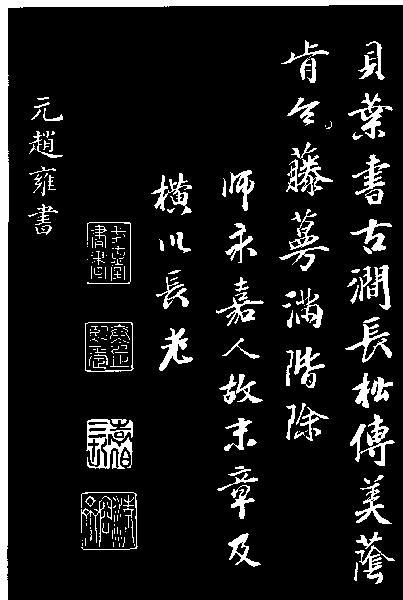 貝葉書古澗長松傳美蔭
肯令藤蔓滿階除
師永嘉人故末章及
橫川長老
元趙雍書